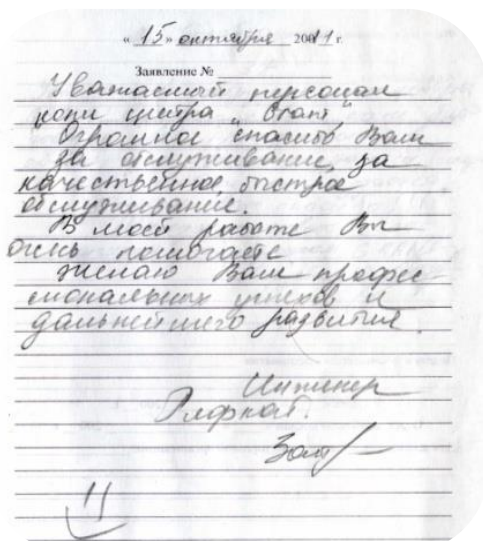 « 15 » октября 2011 г.
Заявление №
Уважаемый персонал
копи центра „Стант"
Огромное спасибо Вам
за обслуживание, за
качественное, быстрое
обслуживание.
В моей работе Вы
очень помогаете
желаю Вам профес-
сиональных успехов и
дальнейшего развития.
Инженер